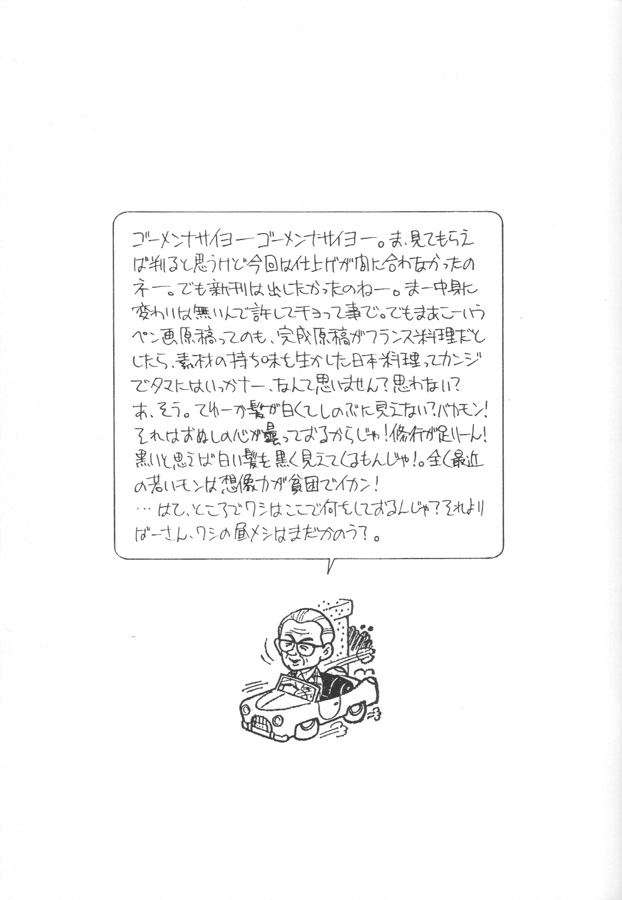 ゴーメンナサイヨー ゴーメンナサイヨー。ま、見てもらえ
ば判ると思うけど今回は仕上げが間に合わなかったの
ネー。でも新刊は出したかったのねー。まー中身に
変わりは無いんで許してチョって事で。でもまあこーいう
ペン画原稿ってのも、完成原稿がフランス料理だと
したら、素材の持ち味も生かした日本料理ってカンジ
でタマにはいっかナー、なんて思いません?思わない?
あ、そう。てゆーか髪が白くてしのぶに見えない?バカモン!
それはおぬしの心が曇っておるからじゃ!修行が足りーん!
黒いと思えば白い髪も黒く見えてくるもんじゃ!。全く最近
の若いモンは想像力が貧困でイカン!
…はて、ところでワシはここで何をしておるんじゃ?それより
ばーさん、ワシの昼メシはまだかのう?。